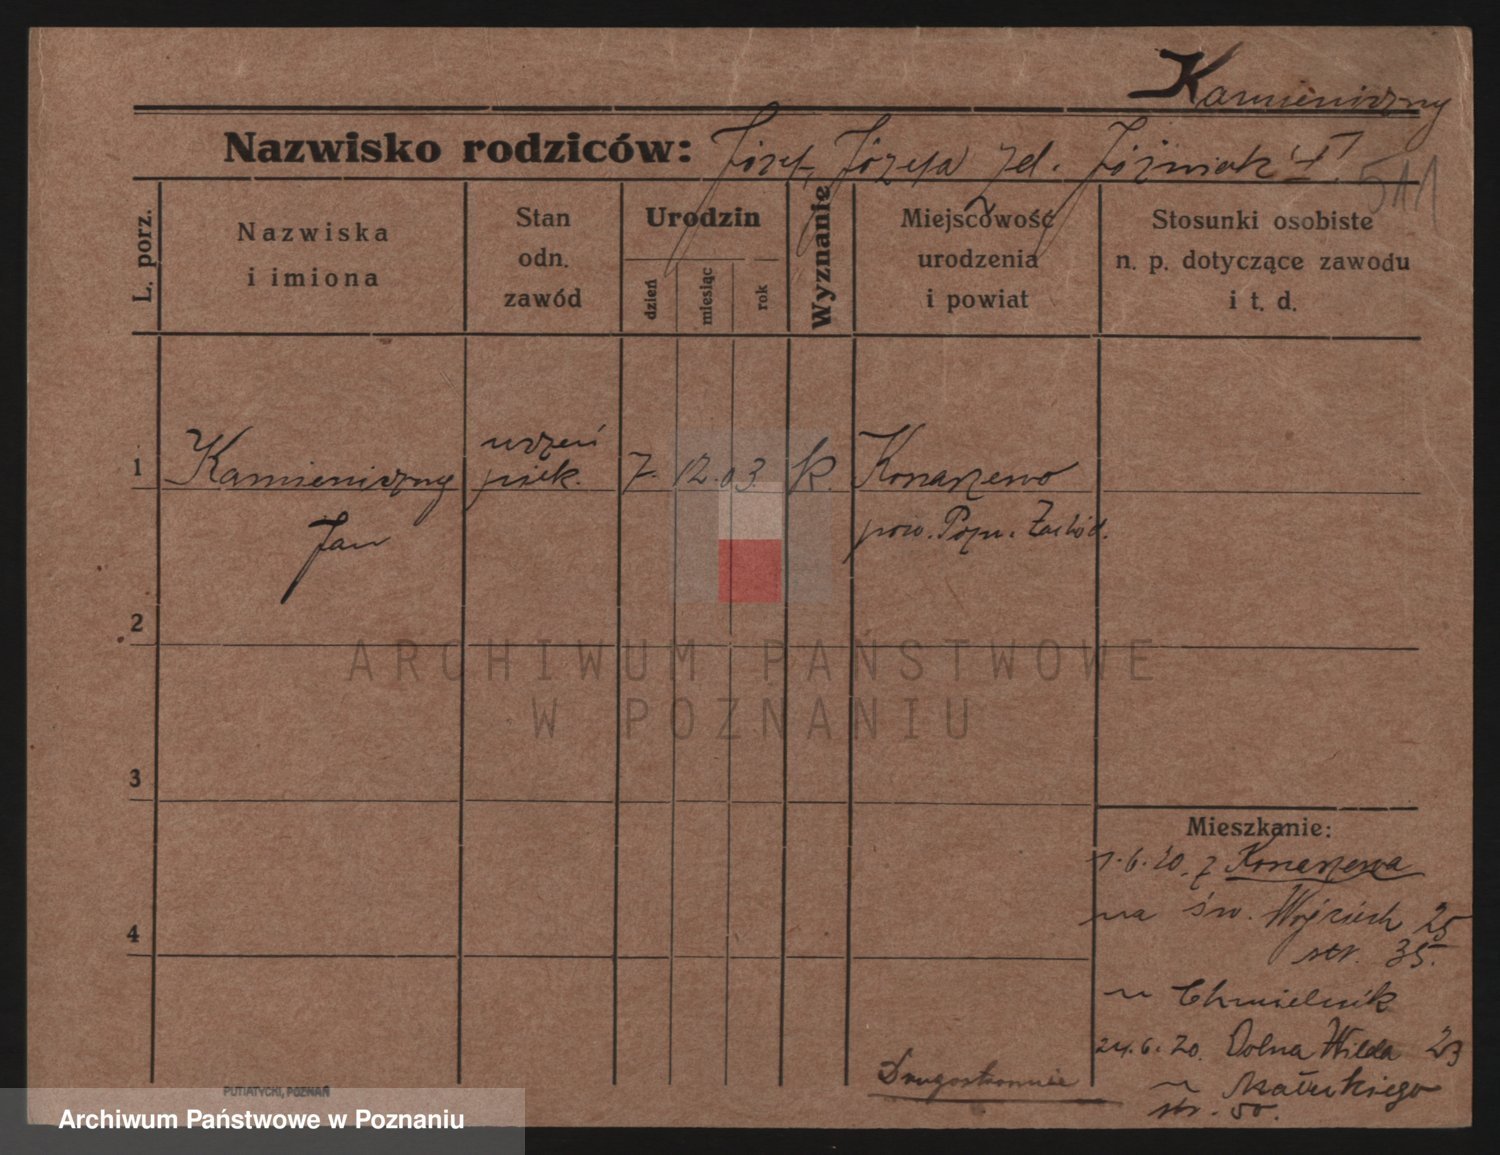 Kamieniczny
Nazwisko rodziców: Józef, Józefa zd. Jóźwiak
511
L. porz.
Nazwiska
i imiona
Stan
odn.
zawód
Urodzin
dzień
miesiąc
rok
Wyznanie
Miejscowość
urodzenia
i powiat
Stosunki osobiste
n. p. dotyczące zawodu
i t. d.
1 Kamieniczny uczeń piek. 7. 12. 03. k. Konarzewo
Jan pow. Pozn. Zachód.
2
3
4
ARCHIWUM PAŃSTWOWE
W POZNANIU
Mieszkanie:
1.6.20. z Konarzewa
na św. Wojciech 25
str. 35.
u Chmielnik
24.6.20. Dolna Wilda 23
u
str. 50.
Drugostronnie
PUTIATYCKI, POZNAŃ
Archiwum Państwowe w Poznaniu